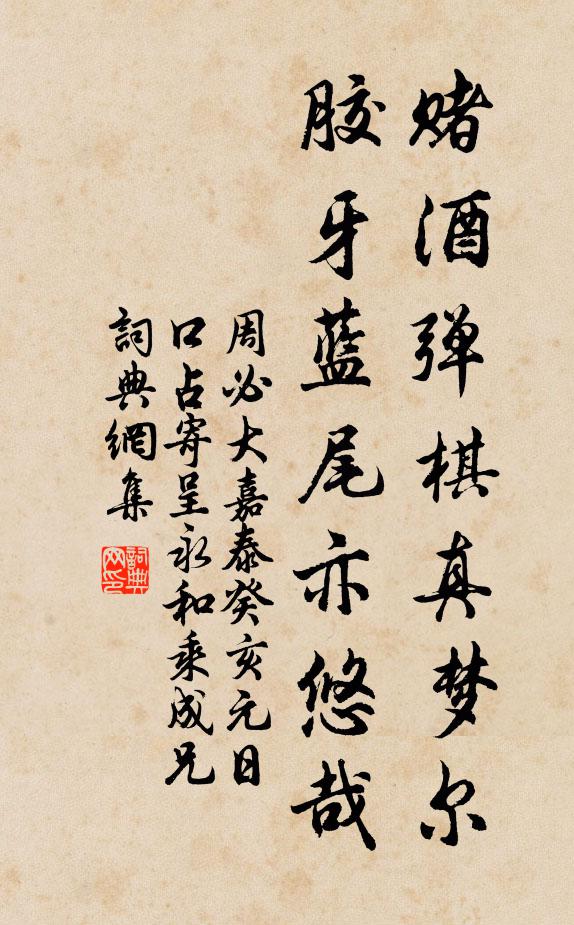 赌酒弹棋真梦尔
胶牙蓝尾亦悠哉
周必大嘉泰癸亥元日
口占寄呈永和乘成兄
詞典網集
詞典网印